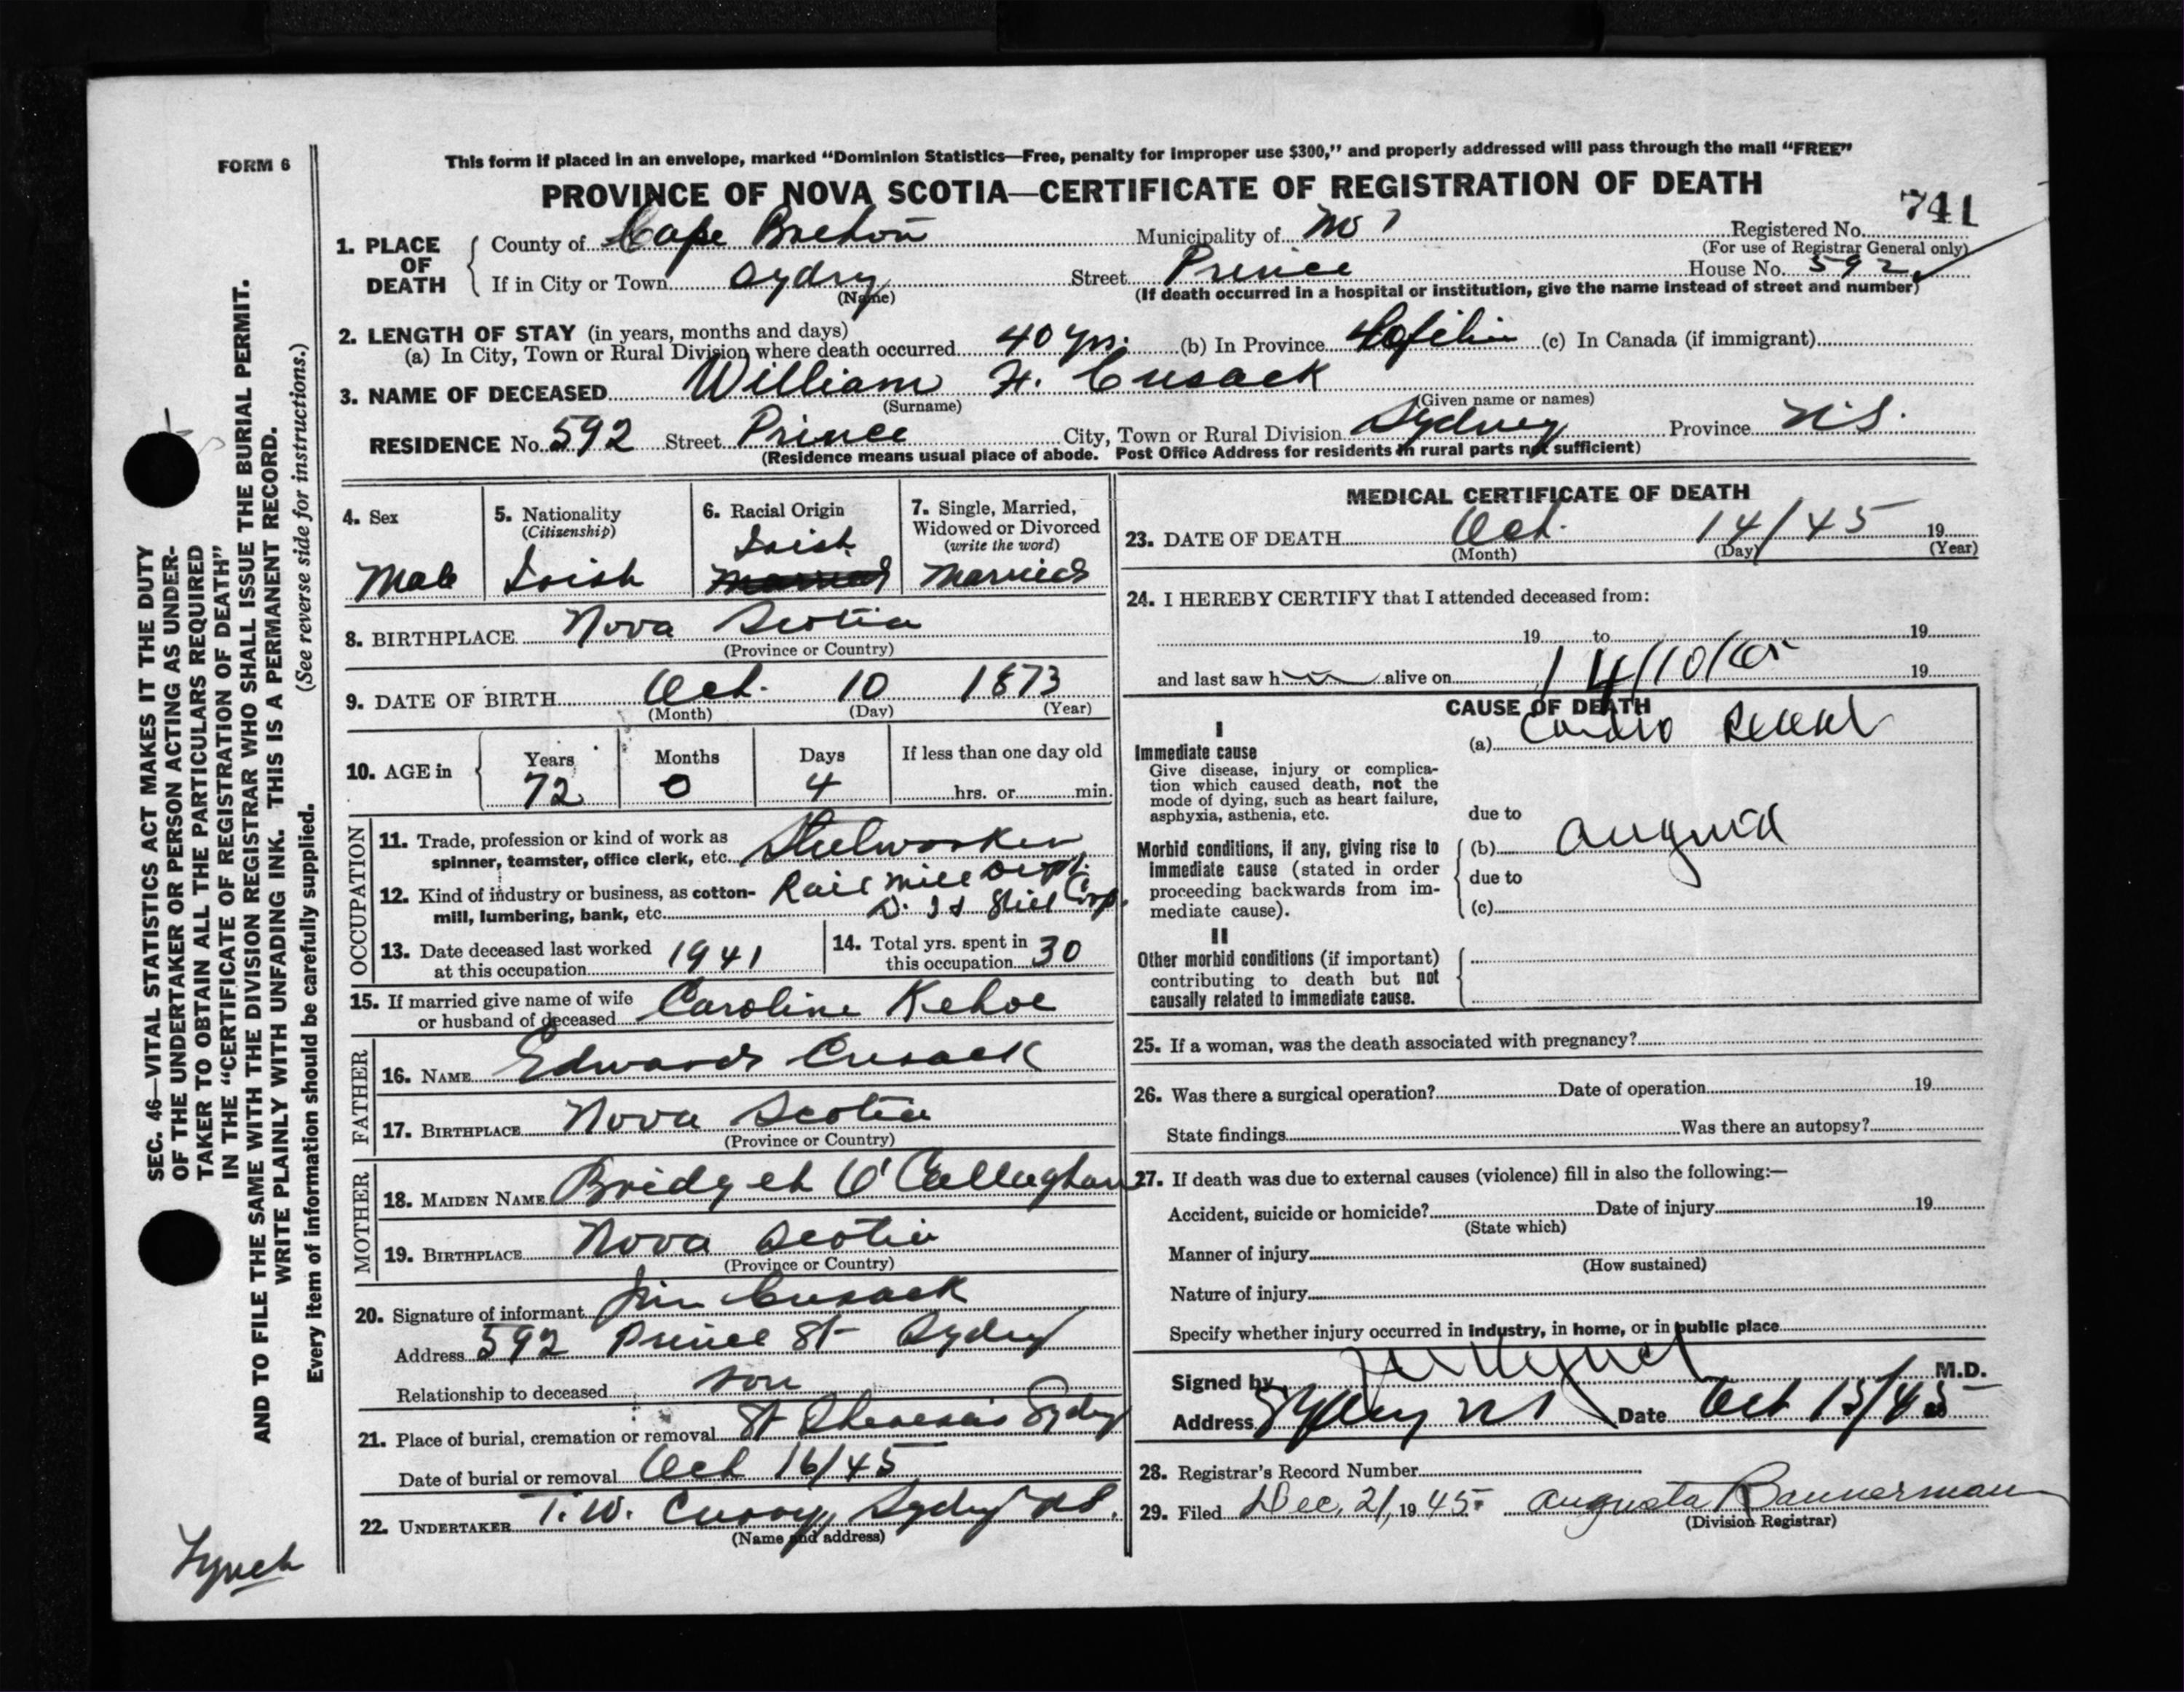 FORM 6
This form if placed in an envelope, marked “Dominion Statistics—Free, penalty for improper use $300,” and properly addressed will pass through the mail “FREE”
PROVINCE OF NOVA SCOTIA—CERTIFICATE OF REGISTRATION OF DEATH
741
1. PLACE OF DEATH County of Cape Breton Municipality of No 1 Registered No.
(For use of Registrar General only)
If in City or Town Sydney Street Prince House No. 592
(Name) (If death occurred in a hospital or institution, give the name instead of street and number)
2. LENGTH OF STAY (in years, months and days)
(a) In City, Town or Rural Division where death occurred 40 yrs. (b) In Province (c) In Canada (if immigrant)
3. NAME OF DECEASED William H. Cusack
(Surname) (Given name or names)
RESIDENCE No. 592 Street Prince City, Town or Rural Division Sydney Province N.S.
(Residence means usual place of abode. Post Office Address for residents in rural parts not sufficient)
4. Sex Male
5. Nationality (Citizenship) Irish
6. Racial Origin Irish Married
7. Single, Married, Widowed or Divorced (write the word) Married
8. BIRTHPLACE Nova Scotia
(Province or Country)
9. DATE OF BIRTH Oct. 10 1873
(Month) (Day) (Year)
10. AGE in Years 72 Months 0 Days 4 If less than one day old hrs. or min.
OCCUPATION
11. Trade, profession or kind of work as spinner, teamster, office clerk, etc. Steelworker
12. Kind of industry or business, as cotton-mill, lumbering, bank, etc. Rail Mill Dept.
D. I & Steel Corp.
13. Date deceased last worked at this occupation 1941
14. Total yrs. spent in this occupation 30
15. If married give name of wife or husband of deceased Caroline Kehoe
FATHER
16. NAME Edward Cusack
17. BIRTHPLACE Nova Scotia
(Province or Country)
MOTHER
18. MAIDEN NAME Bridget O'Callaghan
19. BIRTHPLACE Nova Scotia
(Province or Country)
20. Signature of informant Jim Cusack
Address 592 Prince St Sydney
Relationship to deceased son
21. Place of burial, cremation or removal St Theresa's Sydney
Date of burial or removal Oct 16/45
22. UNDERTAKER T. W. Curry, Sydney N.S.
(Name and address)
MEDICAL CERTIFICATE OF DEATH
23. DATE OF DEATH Oct. 14/45 19
(Month) (Day) (Year)
24. I HEREBY CERTIFY that I attended deceased from:
19 to 19
and last saw h im alive on 14/10/45 19
CAUSE OF DEATH
I
Immediate cause
Give disease, injury or complication which caused death, not the mode of dying, such as heart failure, asphyxia, asthenia, etc.
(a) Cardio Renal
due to
Morbid conditions, if any, giving rise to immediate cause (stated in order proceeding backwards from immediate cause).
(b)
due to
(c)
II
Other morbid conditions (if important) contributing to death but not causally related to immediate cause.
25. If a woman, was the death associated with pregnancy?
26. Was there a surgical operation? Date of operation 19
State findings Was there an autopsy?
27. If death was due to external causes (violence) fill in also the following:—
Accident, suicide or homicide? Date of injury 19
(State which)
Manner of injury
(How sustained)
Nature of injury
Specify whether injury occurred in industry, in home, or in public place
Signed by Lynch M.D.
Address Sydney NS Date Oct 15/45
28. Registrar's Record Number
29. Filed Dec, 21, 1945. Augusta Bannerman
(Division Registrar)
SEC. 46—VITAL STATISTICS ACT MAKES IT THE DUTY
OF THE UNDERTAKER OR PERSON ACTING AS UNDER-
TAKER TO OBTAIN ALL THE PARTICULARS REQUIRED
IN THE “CERTIFICATE OF REGISTRATION OF DEATH”
AND TO FILE THE SAME WITH THE DIVISION REGISTRAR WHO SHALL ISSUE THE BURIAL PERMIT.
WRITE PLAINLY WITH UNFADING INK. THIS IS A PERMANENT RECORD.
Every item of information should be carefully supplied. (See reverse side for instructions.)
Lynch